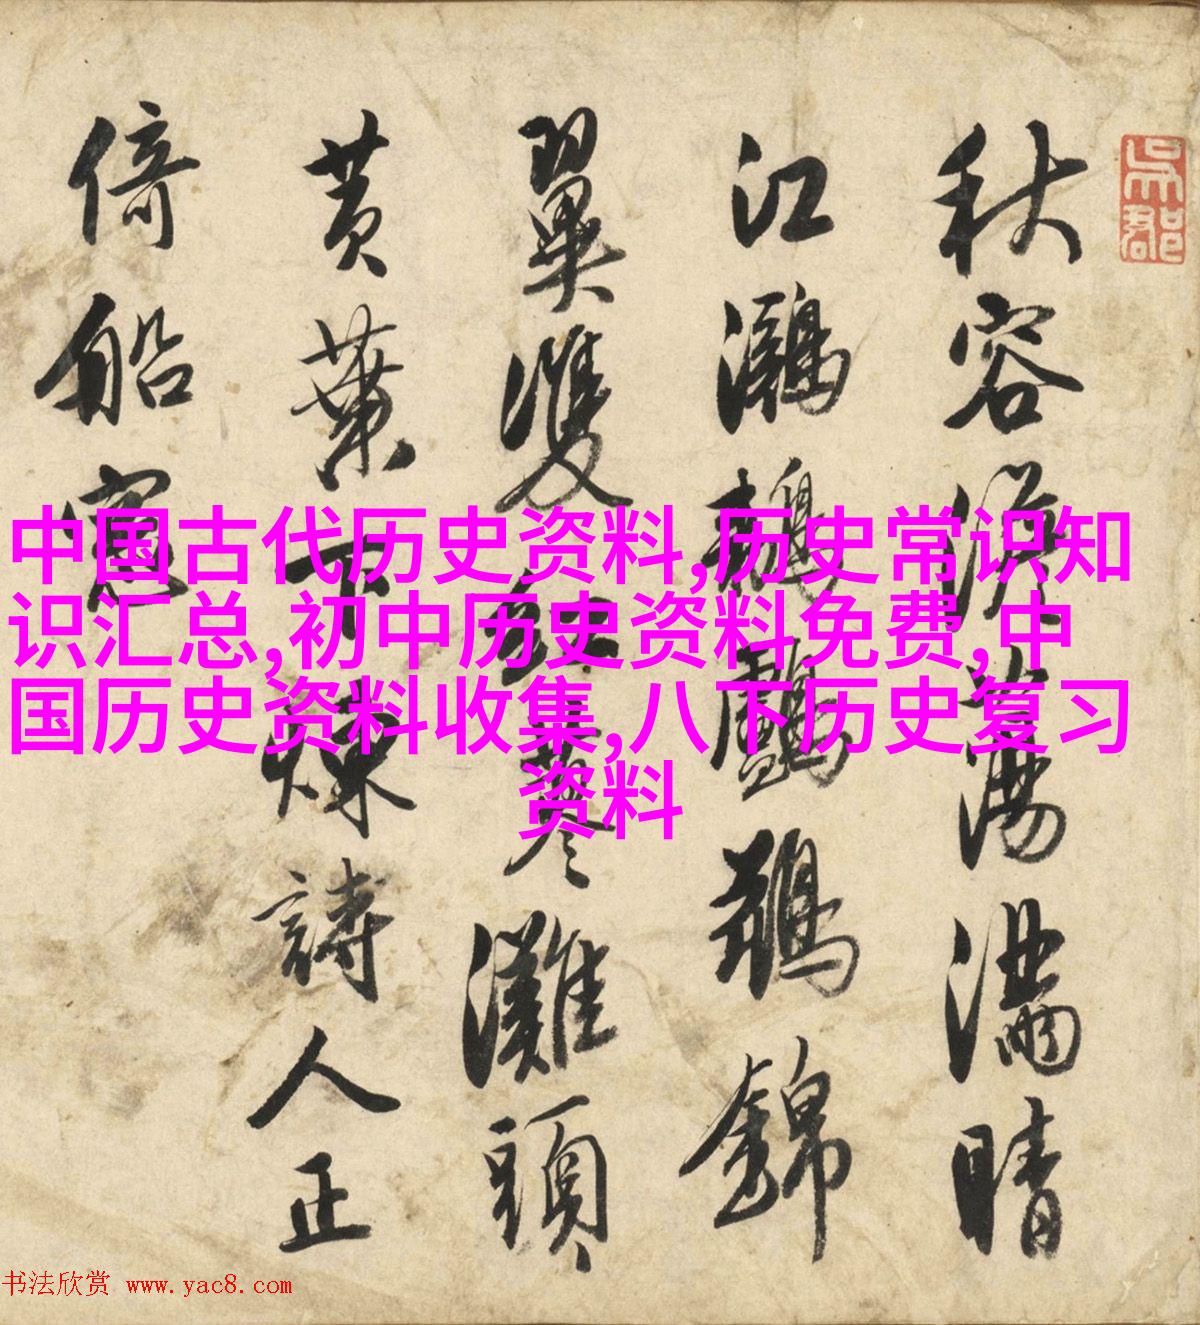 吳郡
秋容淡蕩滿晴
江鸂鶒鸕鶿錦
翼雙紅蓼灘頭
黃葉下煉詩人正
倚船
中国古代历史资料,历史常识知
识汇总,初中历史资料免费,中
国历史资料收集,八下历史复习
资料
书法欣赏 www.yac8.com